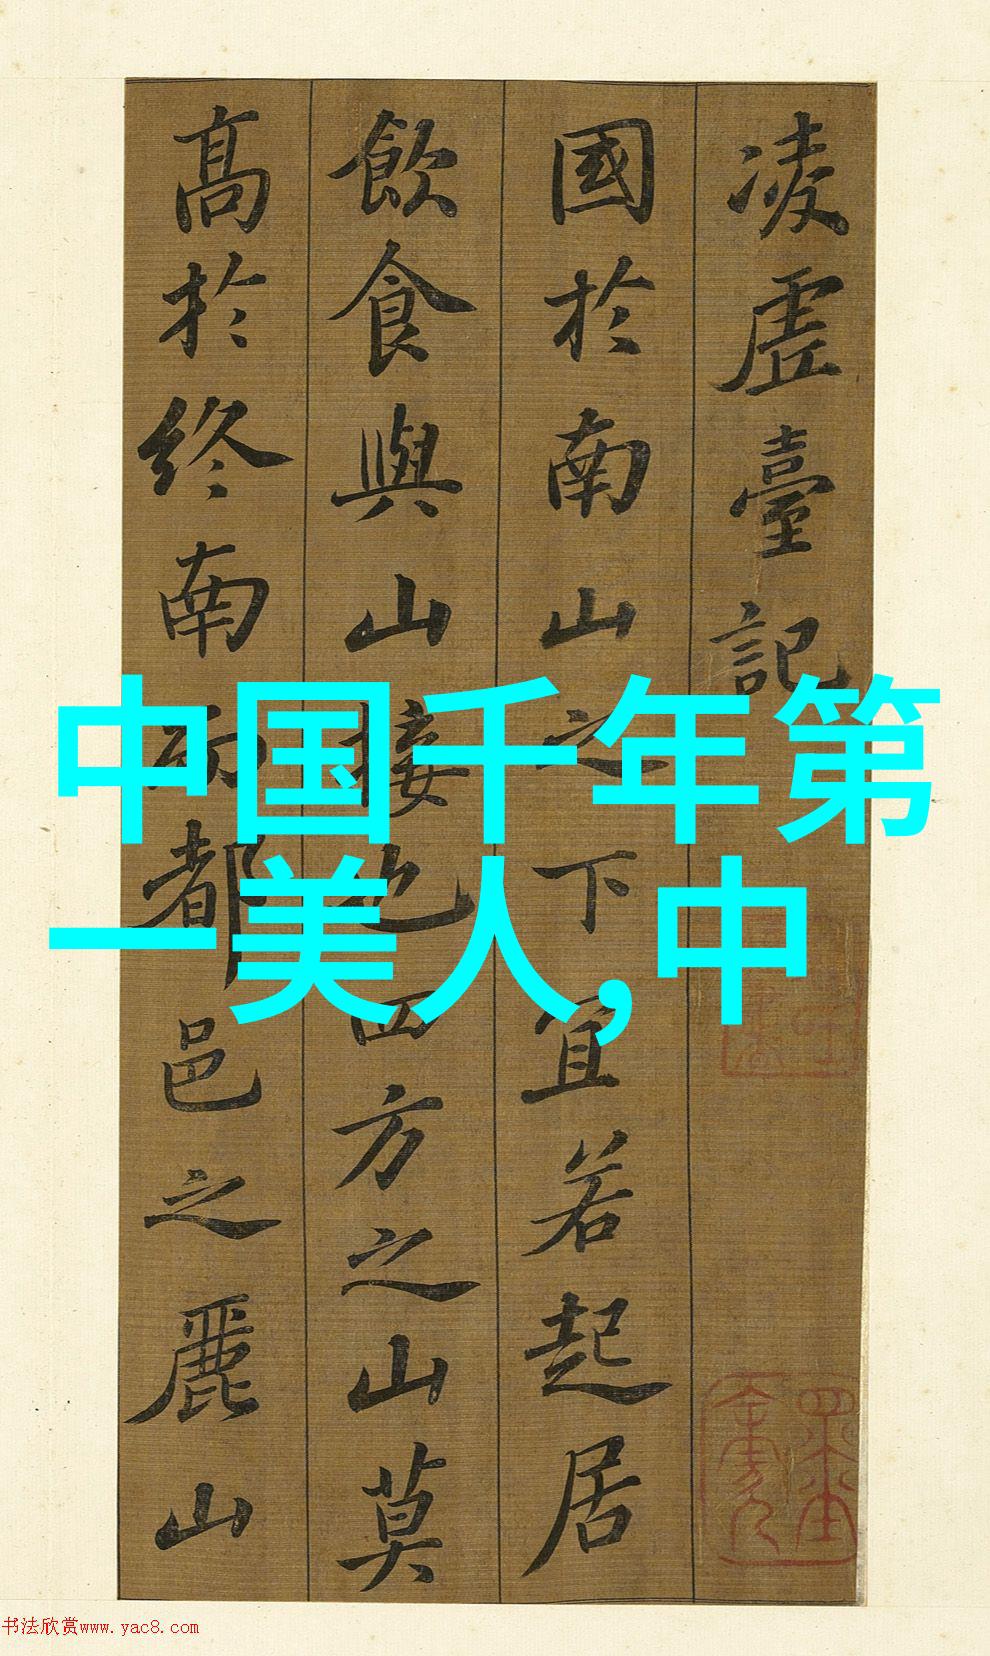 凌虛臺記
國於南山之下宜若起居
飲食與山接也四方之山莫
高於終南而都邑之麗山
中国千年第
一美人,中
书法欣赏www.yac8.com